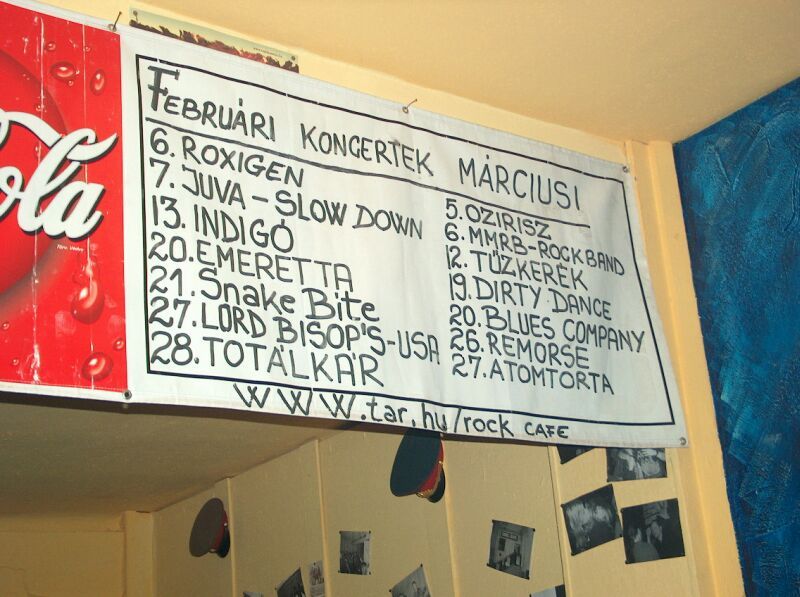 ola
FEBRUÁRI KONCERTEK MÁRCIUSI
6. ROXIGEN
7. JUVA - SLOW DOWN
13. INDIGÓ
20. EMERETTA
21. Snake Bite
27. LORD BISOP'S-USA
28. TOTÁLKÁR
5. OZIRISZ
6. MMRB-ROCKBAND
12. TŰZKERÉK
19. DIRTY DANCE
20. BLUES COMPANY
26. REMORSE
27. ATOMTORTA
WWW.tar.hu/rock CAFE